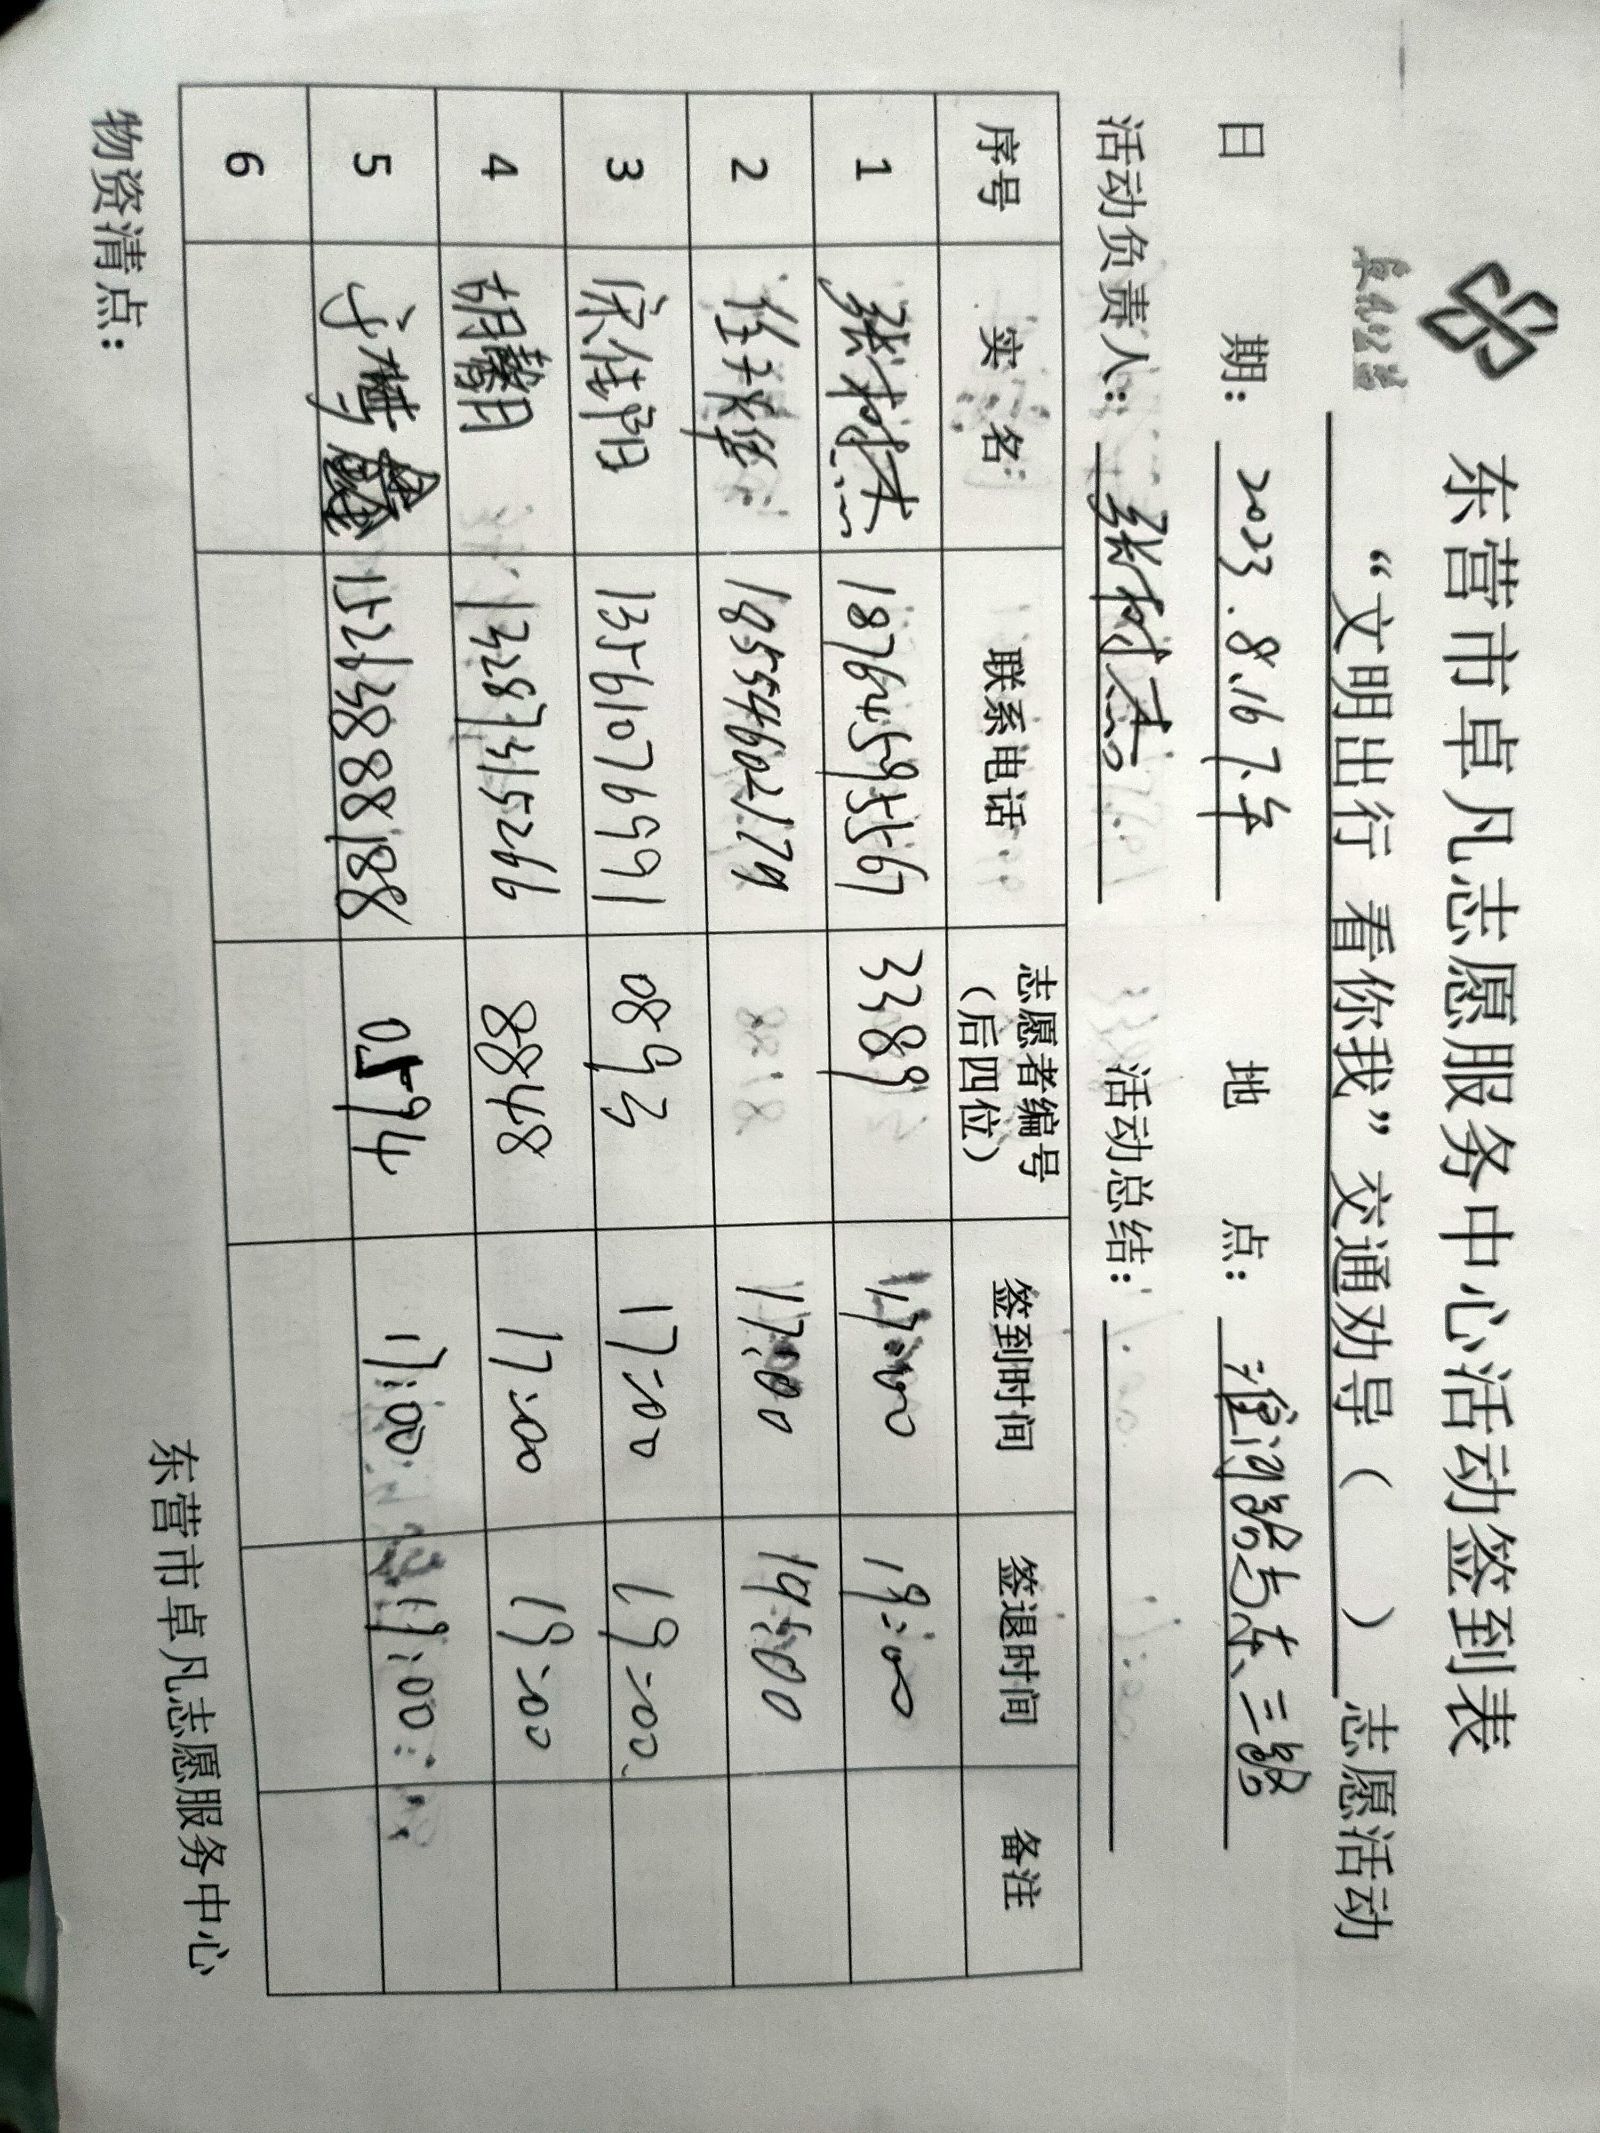 东营市卓凡志愿服务中心活动签到表
“文明出行 看你我”交通劝导（ ）志愿活动
日 期：2023.8.16 下午 地 点：潍河路与东三路
活动负责人：张树杰 活动总结：
序号 实名 联系电话 志愿者编号（后四位） 签到时间 签退时间 备注
1 张树杰 18764595567 3389 17:00 19:00
2 任 18554602179 17:00 19:00
3 宋佳阳 13561076991 0893 17:00 19:00
4 胡馨月 13287315266 8848 17:00 19:00
5 15263888188 0594 17:00 19:00
6
物资清点：
东营市卓凡志愿服务中心